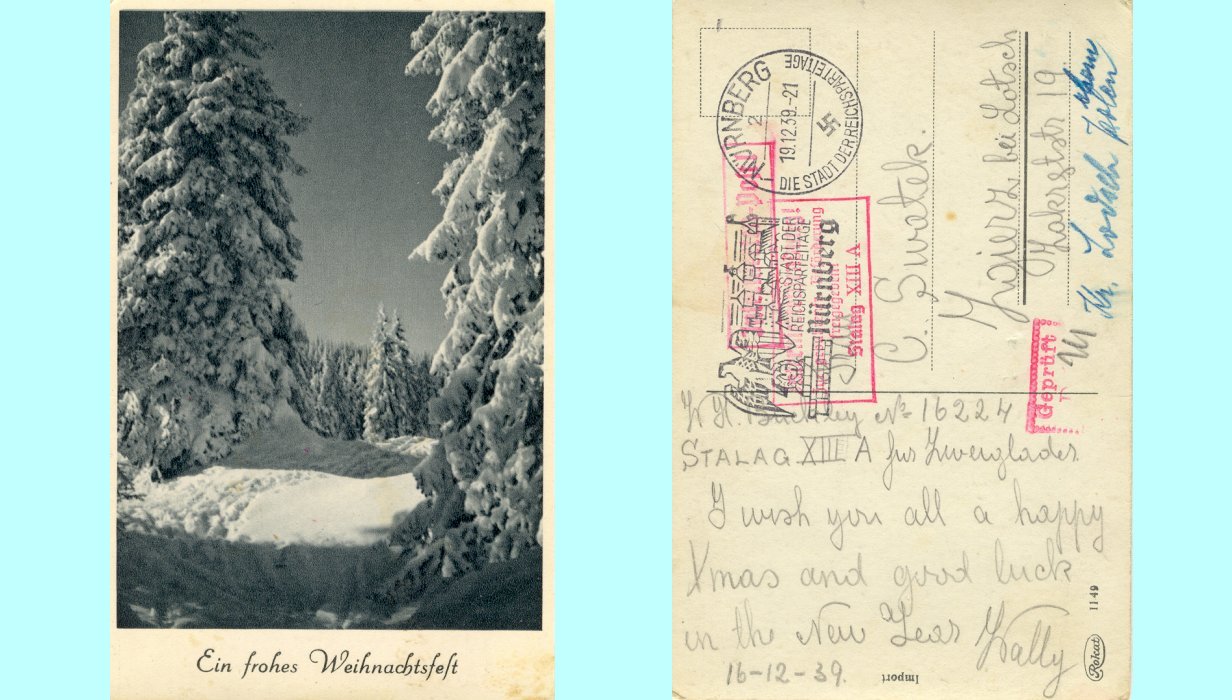 Ein frohes Weihnachtsfest
NÜRNBERG
2
19.12.39.-21
DIE STADT DER REICHSPARTEITAGE
STADT DER
REICHSPARTEITAGE
Nürnberg
Stalag XIII A
C. Swatek.
Zgierz bei Lotsch
19
Kr. Lodsch
polen
Geprüft
W. H. Buckley № 16224
STALAG XIII A
I wish you all a happy
Xmas and good luck
in the New Year Wally
16-12-39.
Import
1149
Rokat